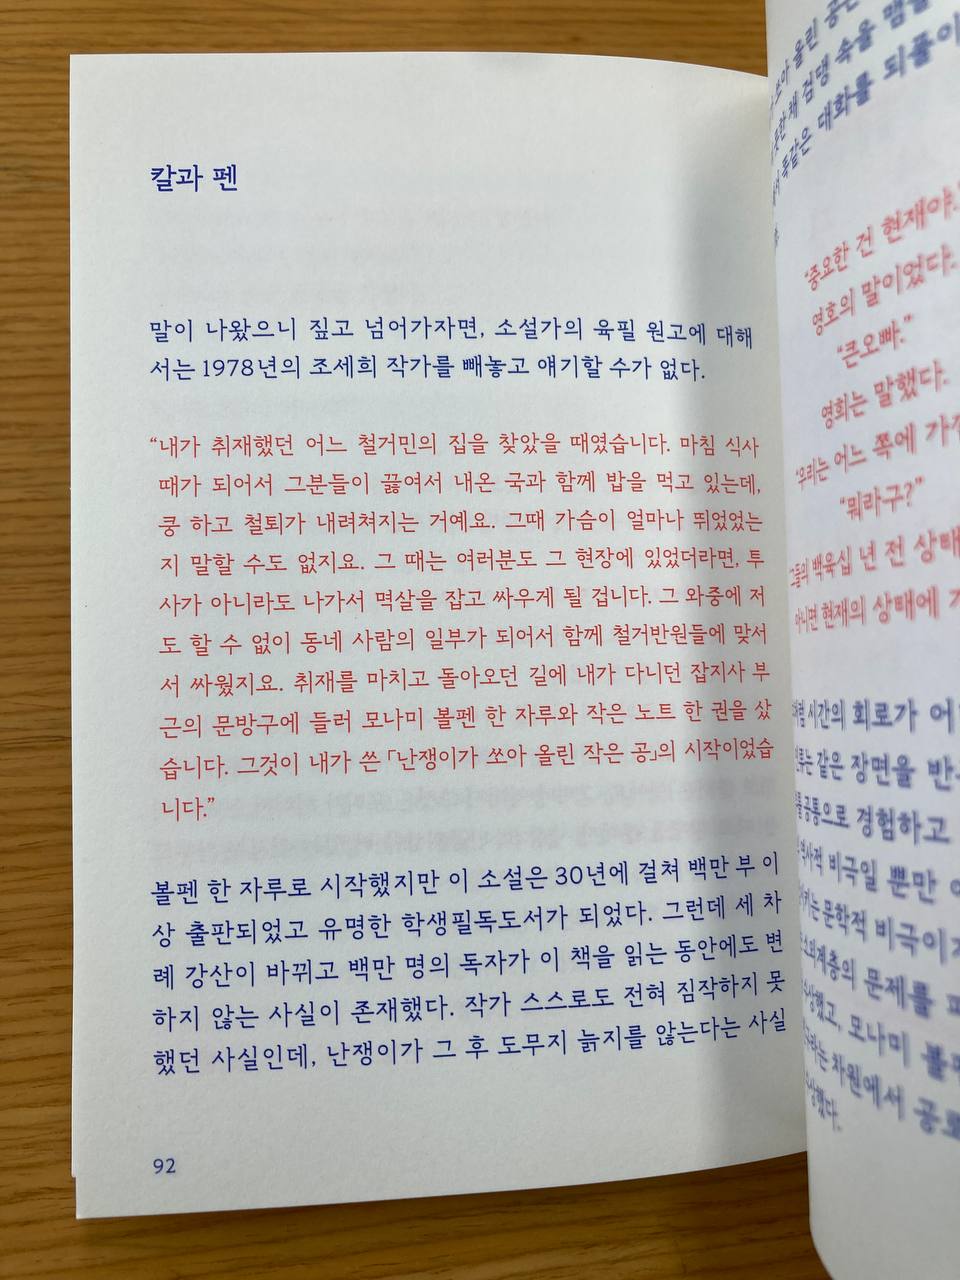 칼과 펜
말이 나왔으니 짚고 넘어가자면, 소설가의 육필 원고에 대해
서는 1978년의 조세희 작가를 빼놓고 얘기할 수가 없다.
“내가 취재했던 어느 철거민의 집을 찾았을 때였습니다. 마침 식사
때가 되어서 그분들이 끓여서 내온 국과 함께 밥을 먹고 있는데,
쿵 하고 철퇴가 내려쳐지는 거예요. 그때 가슴이 얼마나 뛰었었는
지 말할 수도 없지요. 그 때는 여러분도 그 현장에 있었더라면, 투
사가 아니라도 나가서 멱살을 잡고 싸우게 될 겁니다. 그 와중에 저
도 할 수 없이 동네 사람의 일부가 되어서 함께 철거반원들에 맞서
서 싸웠지요. 취재를 마치고 돌아오던 길에 내가 다니던 잡지사 부
근의 문방구에 들러 모나미 볼펜 한 자루와 작은 노트 한 권을 샀
습니다. 그것이 내가 쓴 「난쟁이가 쏘아 올린 작은 공」의 시작이었습
니다.”
볼펜 한 자루로 시작했지만 이 소설은 30년에 걸쳐 백만 부 이
상 출판되었고 유명한 학생필독도서가 되었다. 그런데 세 차
례 강산이 바뀌고 백만 명의 독자가 이 책을 읽는 동안에도 변
하지 않는 사실이 존재했다. 작가 스스로도 전혀 짐작하지 못
했던 사실인데, 난쟁이가 그 후 도무지 늙지를 않는다는 사실
92
쏘아 올린 공은
채 검댕 속을 맴돌
똑같은 대화를 되풀이
“중요한 건 현재야.”
영호의 말이었다.
“큰오빠.”
영희는 말했다.
“우리는 어느 쪽에 가
“뭐라구?”
백육십 년 전 상태
아니면 현재의 상태에
시간의 회로가
같은 장면을 반
공통으로 경험하고
비극일 뿐만
문학적 비극이
문제를
모나미 볼펜
차원에서